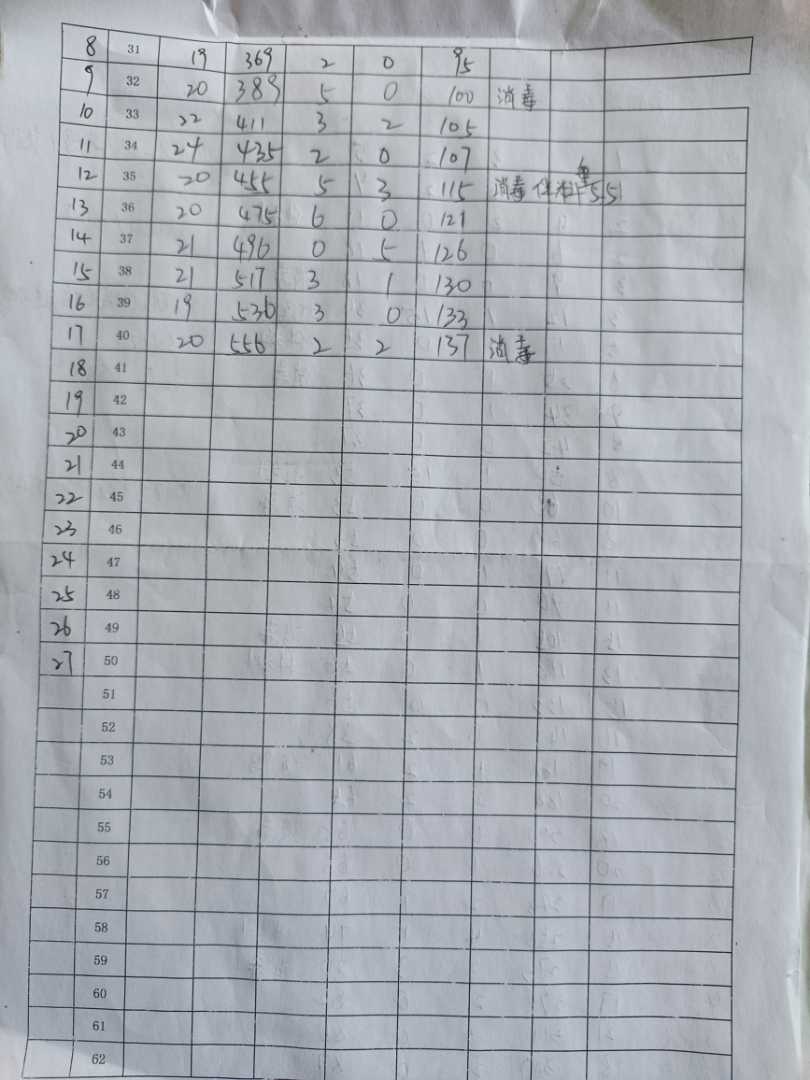 8 31 19 369 2 0 95
9 32 20 389 5 0 100 消毒
10 33 22 411 3 2 105
11 34 24 435 2 0 107
12 35 20 455 5 3 115 消毒 体料 55
13 36 20 475 6 0 121
14 37 21 496 0 5 126
15 38 21 517 3 1 130
16 39 19 536 3 0 133
17 40 20 556 2 2 137 消毒
18 41
19 42
20 43
21 44
22 45
23 46
24 47
25 48
26 49
27 50
51
52
53
54
55
56
57
58
59
60
61
62